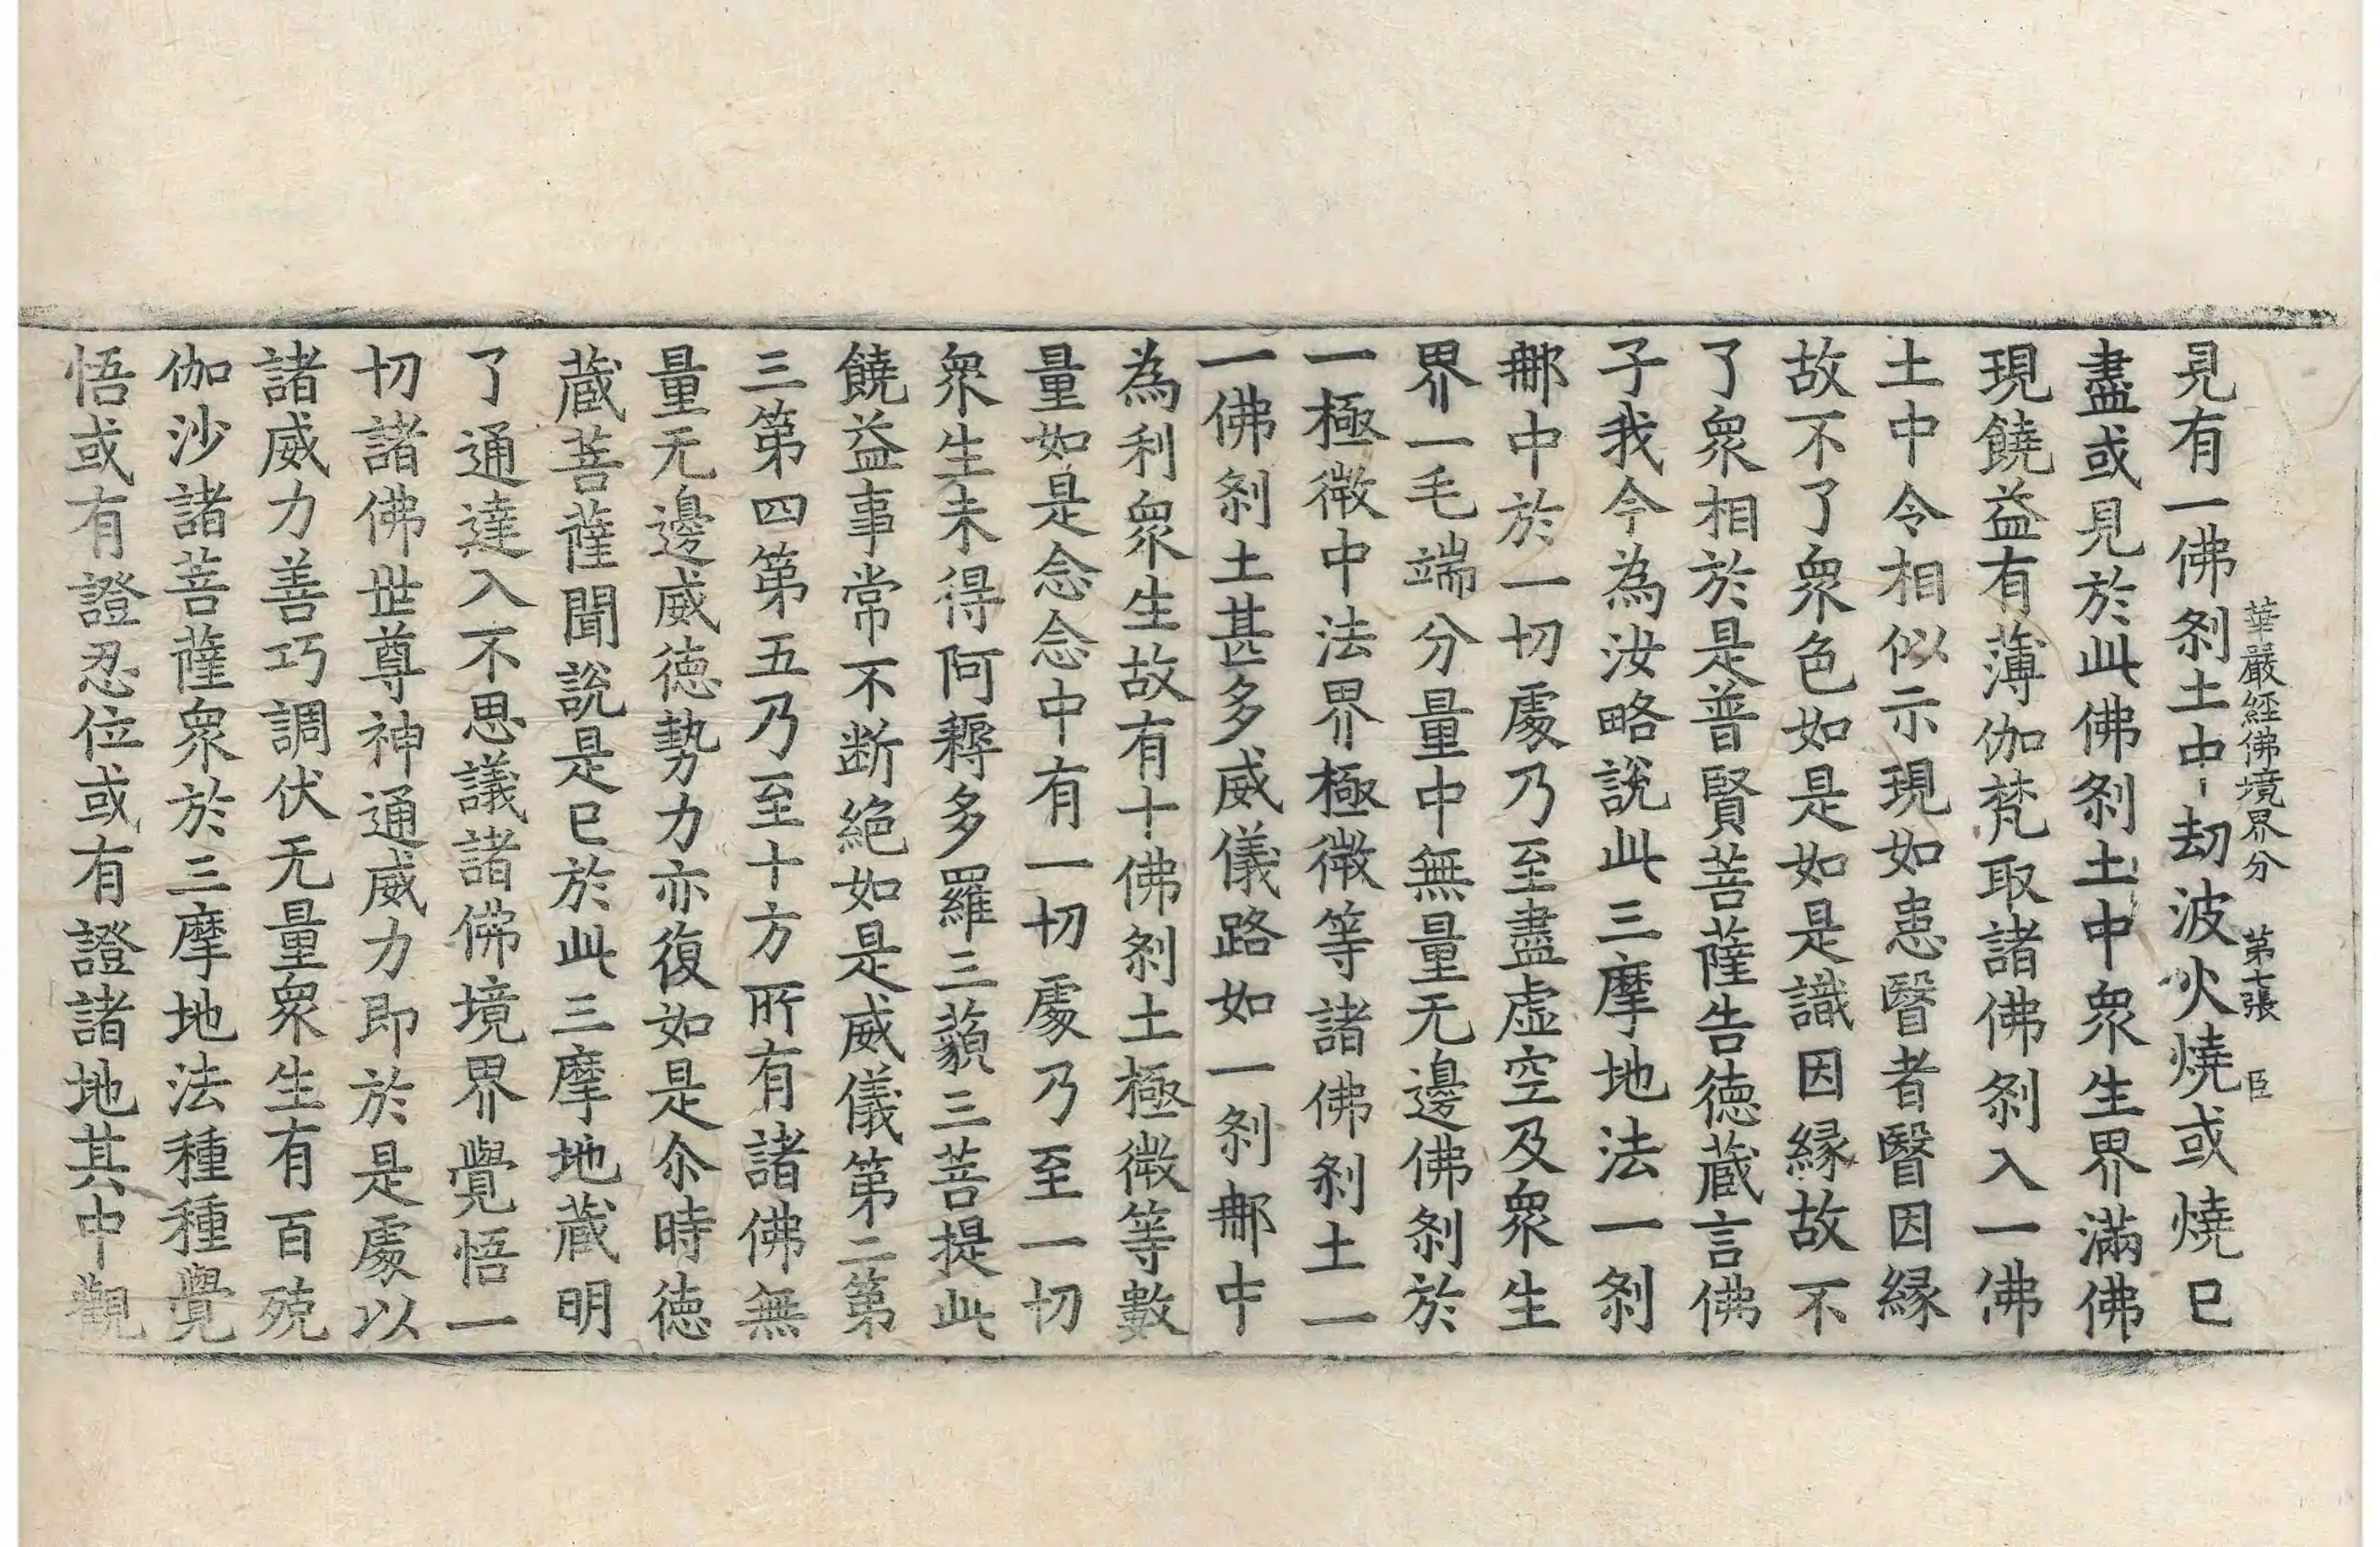 華嚴經佛境界分　第七張　臣
見有一佛剎土中一劫波火燒或燒已
盡或見於此佛剎土中眾生界滿佛
現饒益有薄伽梵取諸佛剎入一佛
土中令相似示現如患瞖者瞖因緣
故不了眾色如是如是識因緣故不
了眾相於是普賢菩薩告德藏言佛
子我今為汝略說此三摩地法一剎
那中於一切處乃至盡虛空及眾生
界一毛端分量中無量无邊佛剎於
一極微中法界極微等諸佛剎土一
一佛剎土甚多威儀路如一剎那中
為利眾生故有十佛剎土極微等數
量如是念念中有一切處乃至一切
眾生未得阿耨多羅三藐三菩提此
饒益事常不斷絕如是威儀第二第
三第四第五乃至十方所有諸佛無
量无邊威德勢力亦復如是尒時德
藏菩薩聞說是已於此三摩地藏明
了通達入不思議諸佛境界覺悟一
切諸佛世尊神通威力即於是處以
諸威力善巧調伏无量眾生有百殑
伽沙諸菩薩眾於三摩地法種種覺
悟或有證忍位或有證諸地其中觀